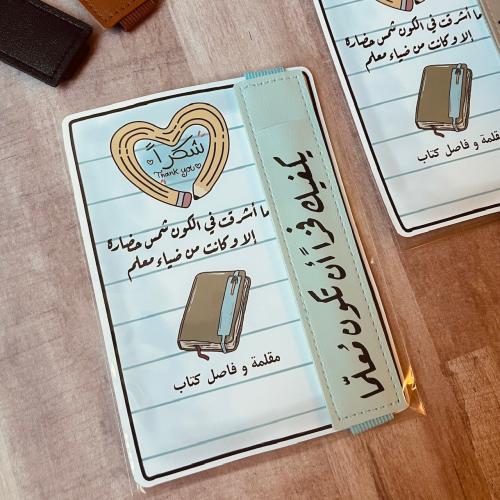 شكراً
Thank you
ما أشرقت في الكون شمس حضارة
إلا وكانت من ضياء معلم
مقلمة و فاصل كتاب
يكفيك فخراً أن تكون معلماً
ما أشرقت في الكون شمس حضارة
إلا وكانت من ضياء معلم
مقلمة و فاصل كتاب